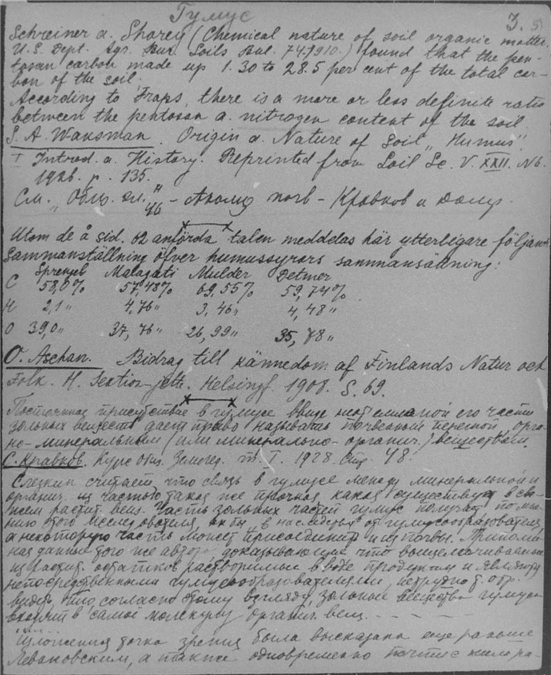 Гумус
Schreiner a. Shorey (Chemical nature of soil organic matter
U.S. Dept. Agr. Bur. Soils Bul. 74, 1910.) found that the pen-
tosan carbon made up 1.30 to 28.5 per cent of the total car-
bon of the soil.
According to Fraps, there is a more or less definite ratio
between the pentosan a. nitrogen content of the soil
S. A. Waksman. Origin a. Nature of Soil „Humus".
I Introd. a. History. Reprinted from Soil Sc. V. XXII. N 6.
1926. p. 135.
См. - почв - Кравков и
Utom de å sid. 62 anförda talen meddelas här ytterligare följande
Sammanställning öfver humussyrors sammansättning:
Sprengel Malagati Mulder Detmer
C 58,0% 57,48% 69,55% 59,74%
H 2,1 " 4,76 " 3,46 " 4,48 "
O 39,0 " 37,76 " 26,99 " 35,78 "
O. Aschan. Bidrag till kännedom af Finlands Natur och
Folk. H. Helsingf. 1908. S. 69.
Постоянное присутствие в гумусе в виде неотъемлемой его части
зольных веществ дает право называть почвенный перегной, орга-
но-минеральным (или минерально-органич.) веществом.
С. Кравков. Курс общ. Землед. т. I. 1928. Стр. 48.
Слезкин считает, что связь в гумусе между минеральной и
органич. частью такая же прочная, какая существует в све-
жем растит. вещ. Часть зольных частей гумус получает по мне-
нию этого исследователя, в наследство от гумусообразователя,
а некоторую часть может присоединить и из почвы.
данные того же автора, доказывающие что выщелачивание
из остатков растворимые в воде продукты и являются
непосредственными гумусообразователями, нетрудно
видеть, что согласно этому взгляду зольные вещества гумуса
входят в самое молекулу органич. вещ.
Изложенная точка зрения была высказана еще раньше
Леваковским, а также одновременно почти с